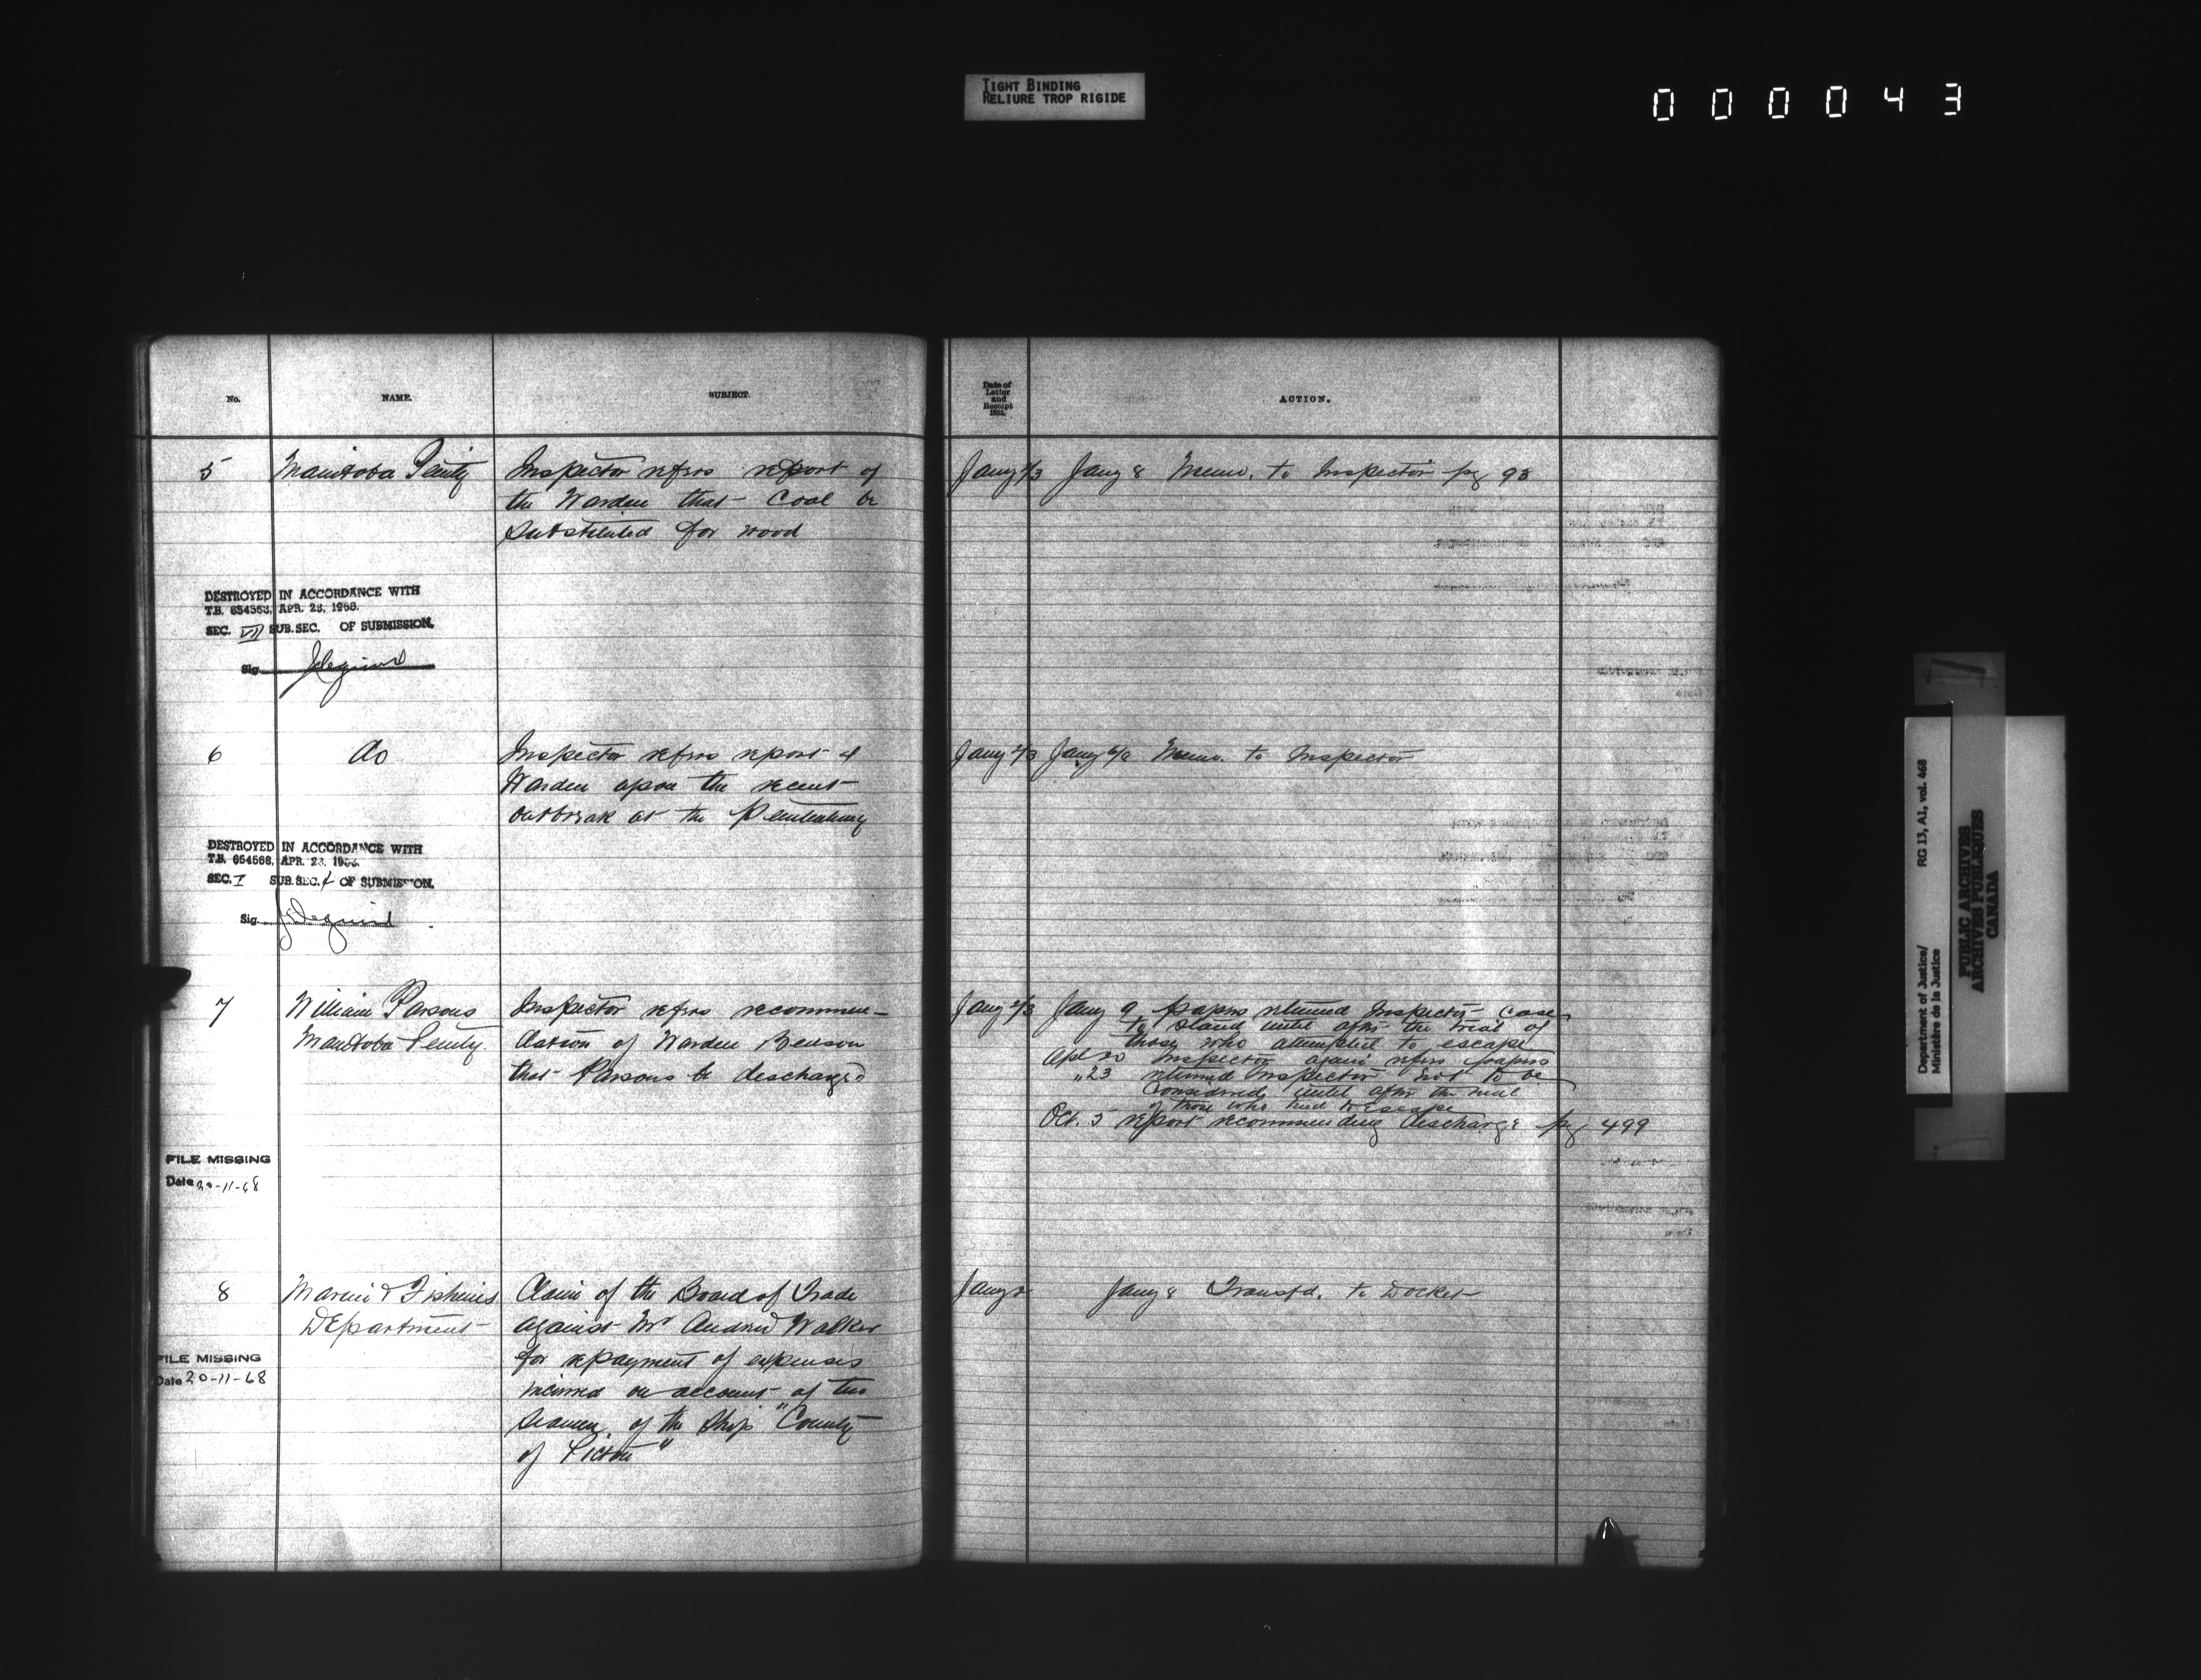 TIGHT BINDING
RELIURE TROP RIGIDE
000043
No.
NAME.
SUBJECT.
Date of
Letter
and
Receipt
ACTION.
5
Manitoba Penity
Inspector refers report of
the Warden that Coal be
substituted for wood
Jany 2/3
Jany 8 Memo. to Inspector pg 93
DESTROYED IN ACCORDANCE WITH
T.B. 654563, APR. 23, 1968.
SEC. VII SUB. SEC. OF SUBMISSION.
Sig.
6
do
Inspector refers report of
Warden upon the recent
outbreak at the Penitentiary
Jany 2/3
Jany 6/8 Memo. to Inspector
DESTROYED IN ACCORDANCE WITH
T.B. 654563, APR. 23,
SEC. I SUB. SEC. OF SUBMISSION.
Sig.
7
William Parsons
Manitoba Penity.
Inspector refers recommen-
dation of Warden Benson
that Parsons be discharged
Jany 2/3
Jany 9 papers returned Inspector case
to stand until after the trial of
those who attempted to escape
Apl 20 Inspector again refers papers
" 23 returned Inspector not to be
considered until after the trial
of those who tried to escape
Oct. 5 report recommending discharge pg 499
FILE MISSING
Date 20-11-68
8
Marine & Fisheries
Department
Claim of the Board of Trade
against Mr Andrew Walker
for repayment of expenses
incurred on account of two
seamen of the ship "County
of Pictou"
Jany 2
Jany 8 Transfd. to Docket
FILE MISSING
Date 20-11-68
Department of Justice/ RG 13, A1, vol. 468
Ministère de la Justice
PUBLIC ARCHIVES
ARCHIVES PUBLIQUES
CANADA